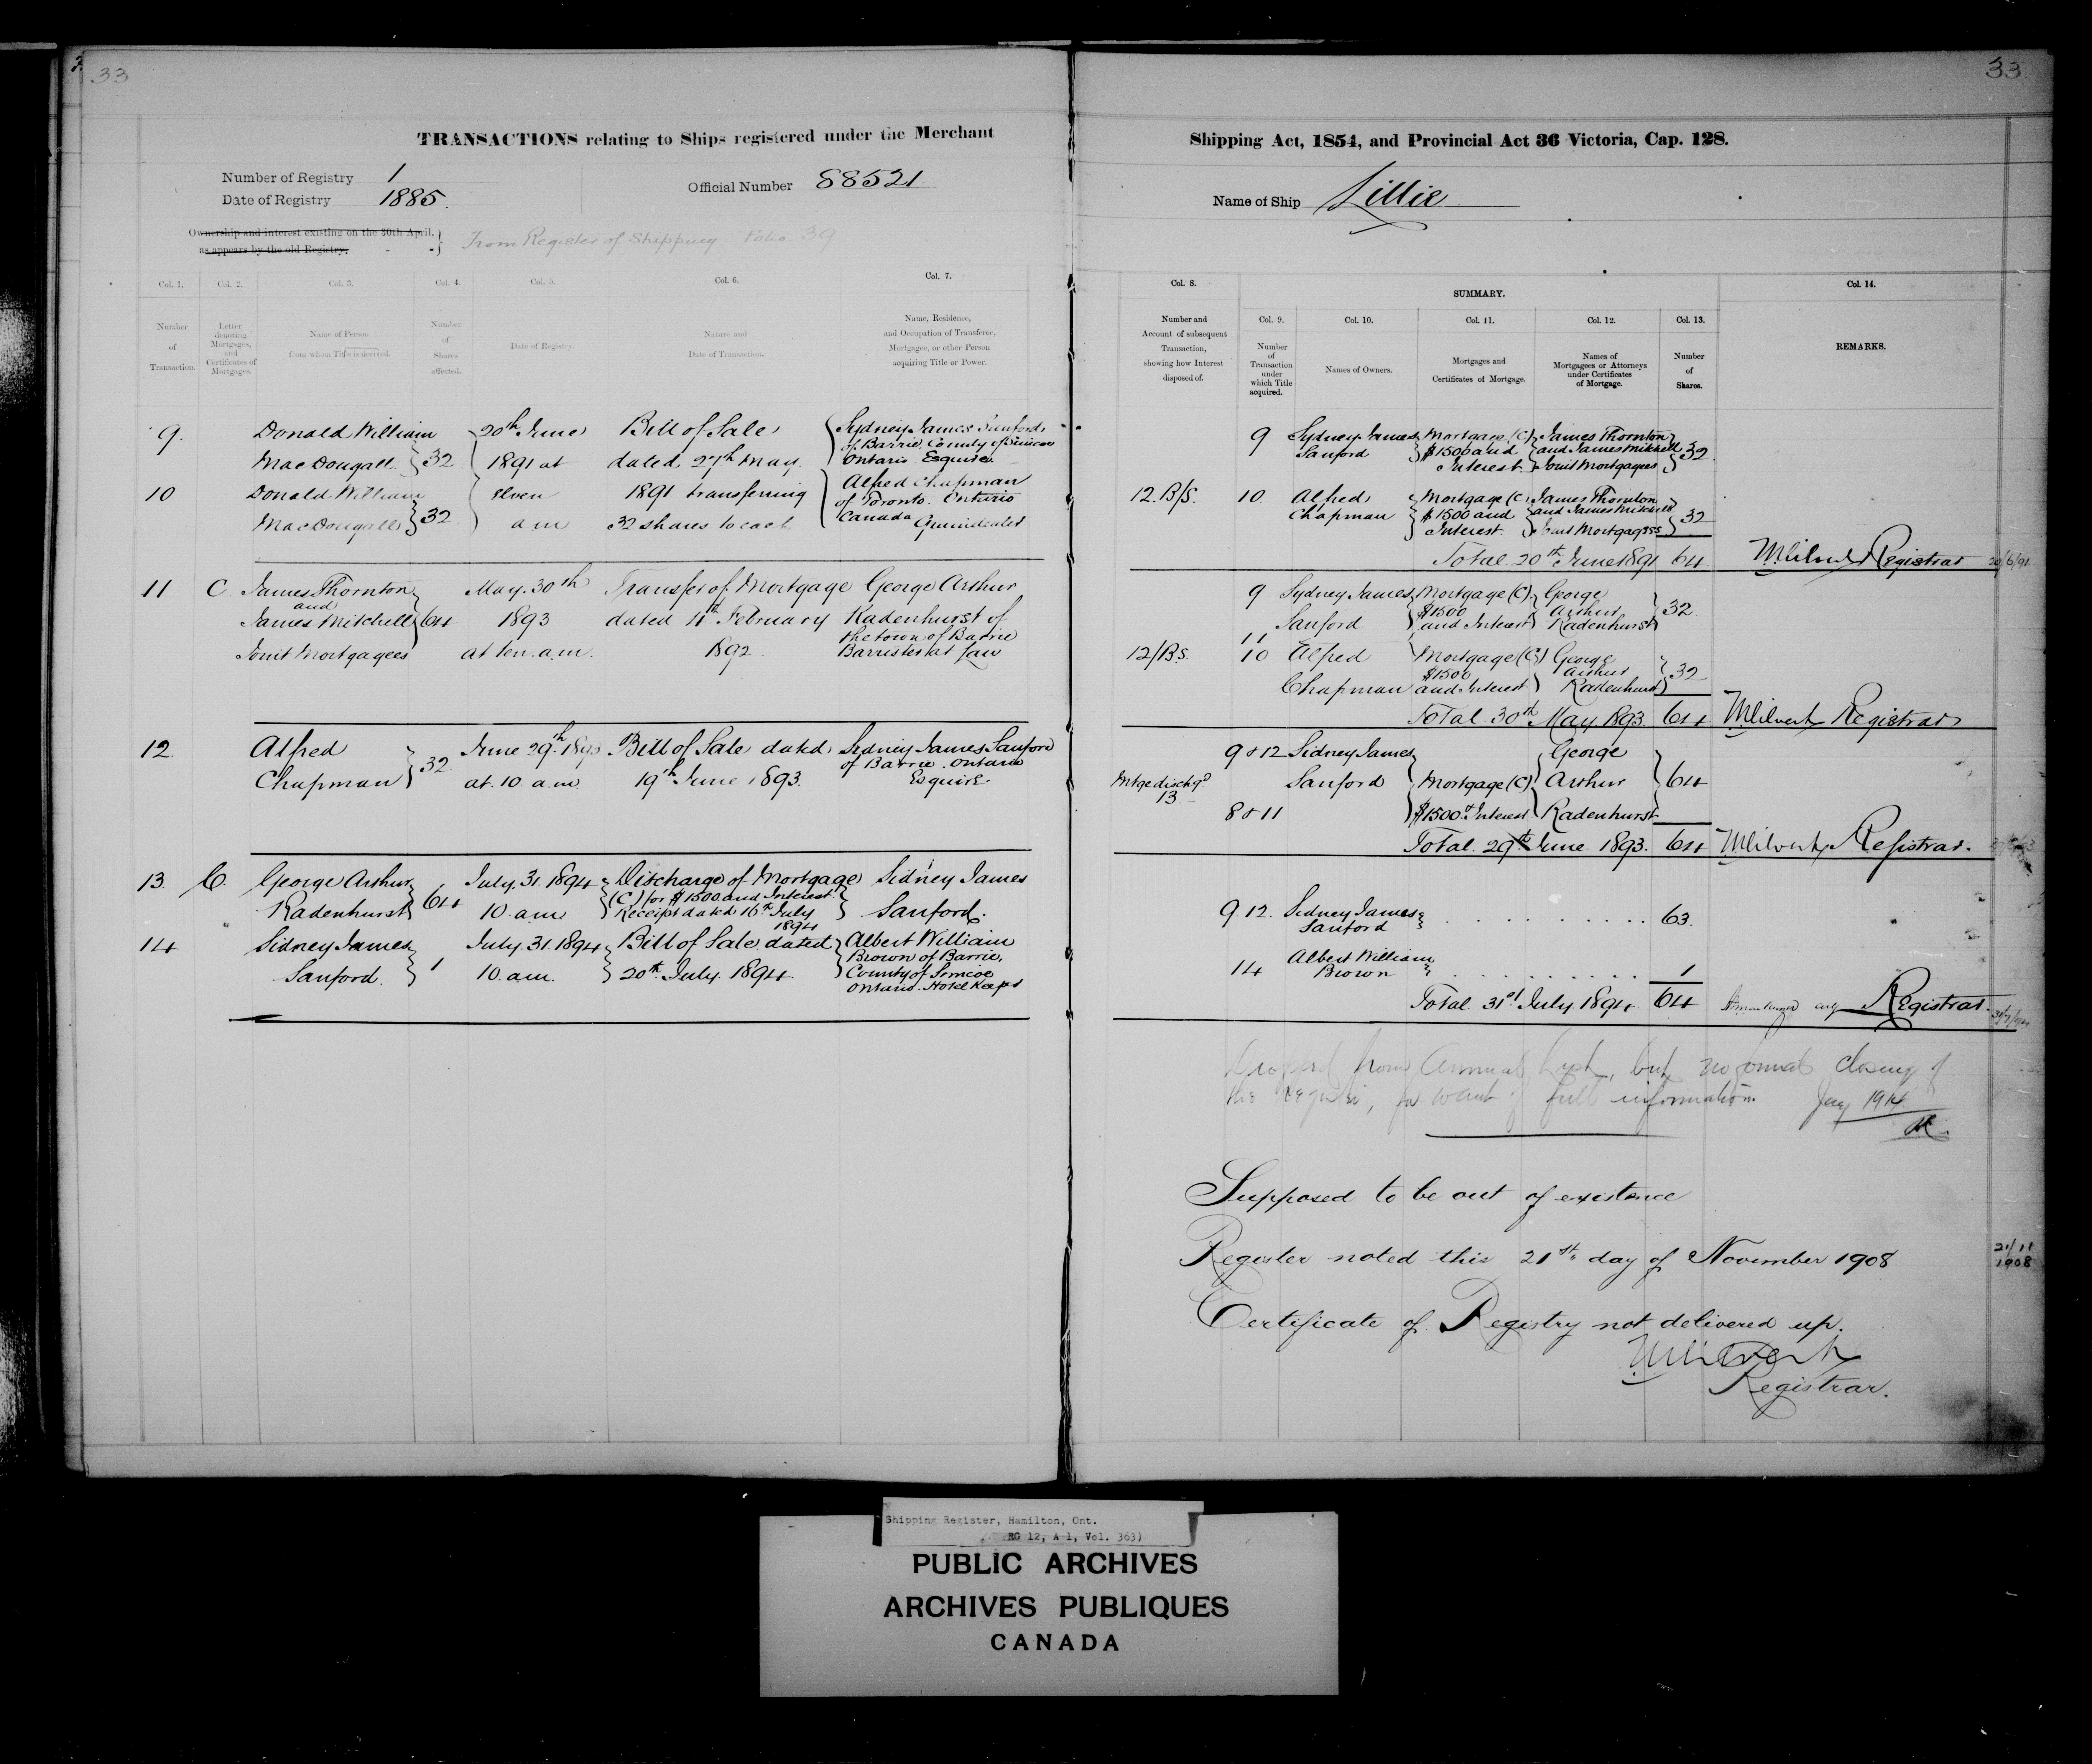 33
33
TRANSACTIONS relating to Ships registered under the Merchant
Shipping Act, 1854, and Provincial Act 36 Victoria, Cap. 128.
Number of Registry 1
Date of Registry 1885.
Official Number 88521
Name of Ship Lillie
Ownership and interest existing on the 30th April,
as appears by the old Registry.
From Register of Shipping Folio 39
Col. 1.
Number
of
Transaction.
Col. 2.
Letter
denoting
Mortgages,
and
Certificates of
Mortgages.
Col. 3.
Name of Person
from whom Title is derived.
Col. 4.
Number
of
Shares
affected.
Col. 5.
Date of Registry.
Col. 6.
Nature and
Date of Transaction.
Col. 7.
Name, Residence,
and Occupation of Transferee,
Mortgagee, or other Person
acquiring Title or Power.
Col. 8.
Number and
Account of subsequent
Transaction,
showing how Interest
disposed of.
SUMMARY.
Col. 9.
Number
of
Transaction
under
which Title
acquired.
Col. 10.
Names of Owners.
Col. 11.
Mortgages and
Certificates of Mortgage.
Col. 12.
Names of
Mortgagees or Attorneys
under Certificates
of Mortgage.
Col. 13.
Number
of
Shares.
Col. 14.
REMARKS.
9.
Donald William
MacDougall
32
10
Donald William
MacDougall
32
20th June
1891 at
eleven
a m
Bill of Sale
dated 27th May
1891 transferring
32 shares to each
Sydney James Sanford
of Barrie County of Simcoe
Ontario Esquire
Alfred Chapman
of Toronto. Ontario
Canada
11
C.
James Thornton
and
James Mitchell
Joint Mortgagees
64
May. 30th
1893
at ten. a.m.
Transfer of Mortgage
dated 4th February
1892
George Arthur
Radenhurst of
the town of Barrie
Barrister at Law
12.
Alfred
Chapman
32
June 29th 1893
at. 10. a.m.
Bill of Sale dated
19th June 1893.
Sidney James Sanford
of Barrie. Ontario
Esquire.
13.
C.
George Arthur
Radenhurst
64
July. 31. 1894
10. a.m.
Discharge of Mortgage
(C) for $1500 and Interest
Receipt dated 16th July
1894
Sidney James
Sanford.
14
Sidney James
Sanford.
1
July. 31. 1894
10. a.m.
Bill of Sale dated
20th July. 1894
Albert William
Brown of Barrie,
County of Simcoe
Ontario. Hotel Keeper
9
Sydney James
Sanford
Mortgage (C)
$1500 and
Interest
James Thornton
and James Mitchell
Joint Mortgagees
32
12. B/S.
10.
Alfred
Chapman
Mortgage (C)
$1500 and
Interest
James Thornton
and James Mitchell
Joint Mortgagees
32
Total 20th June 1891 64
Registrar
20/6/91
9
Sydney James
Sanford
Mortgage (C).
$1500
and Interest
George
Arthur
Radenhurst
32
11
12/B.S.
10
Alfred
Chapman
Mortgage (C)
$1500
and Interest
George
Arthur
Radenhurst
32
Total 30th May. 1893. 64
Registrar
9 & 12
Sidney James
Sanford
Mtge dischgd
13
8 & 11
Mortgage (C)
$1500 & Interest
George
Arthur
Radenhurst
64
Total. 29th June 1893. 64
Registrar.
9. 12.
Sidney James
Sanford
63.
14
Albert William
Brown
1
Total. 31st July. 1894 64
Registrar.
31/7/94
Dropped from Annual List, but no formal closing of
the Register, for want of full information.
1914
Supposed to be out of existence
Register noted this 21st day of November 1908
21/11
1908
Certificate of Registry not delivered up.
Registrar.
Shipping Register, Hamilton, Ont.
RG 12, A 1, Vol. 363)
PUBLIC ARCHIVES
ARCHIVES PUBLIQUES
CANADA